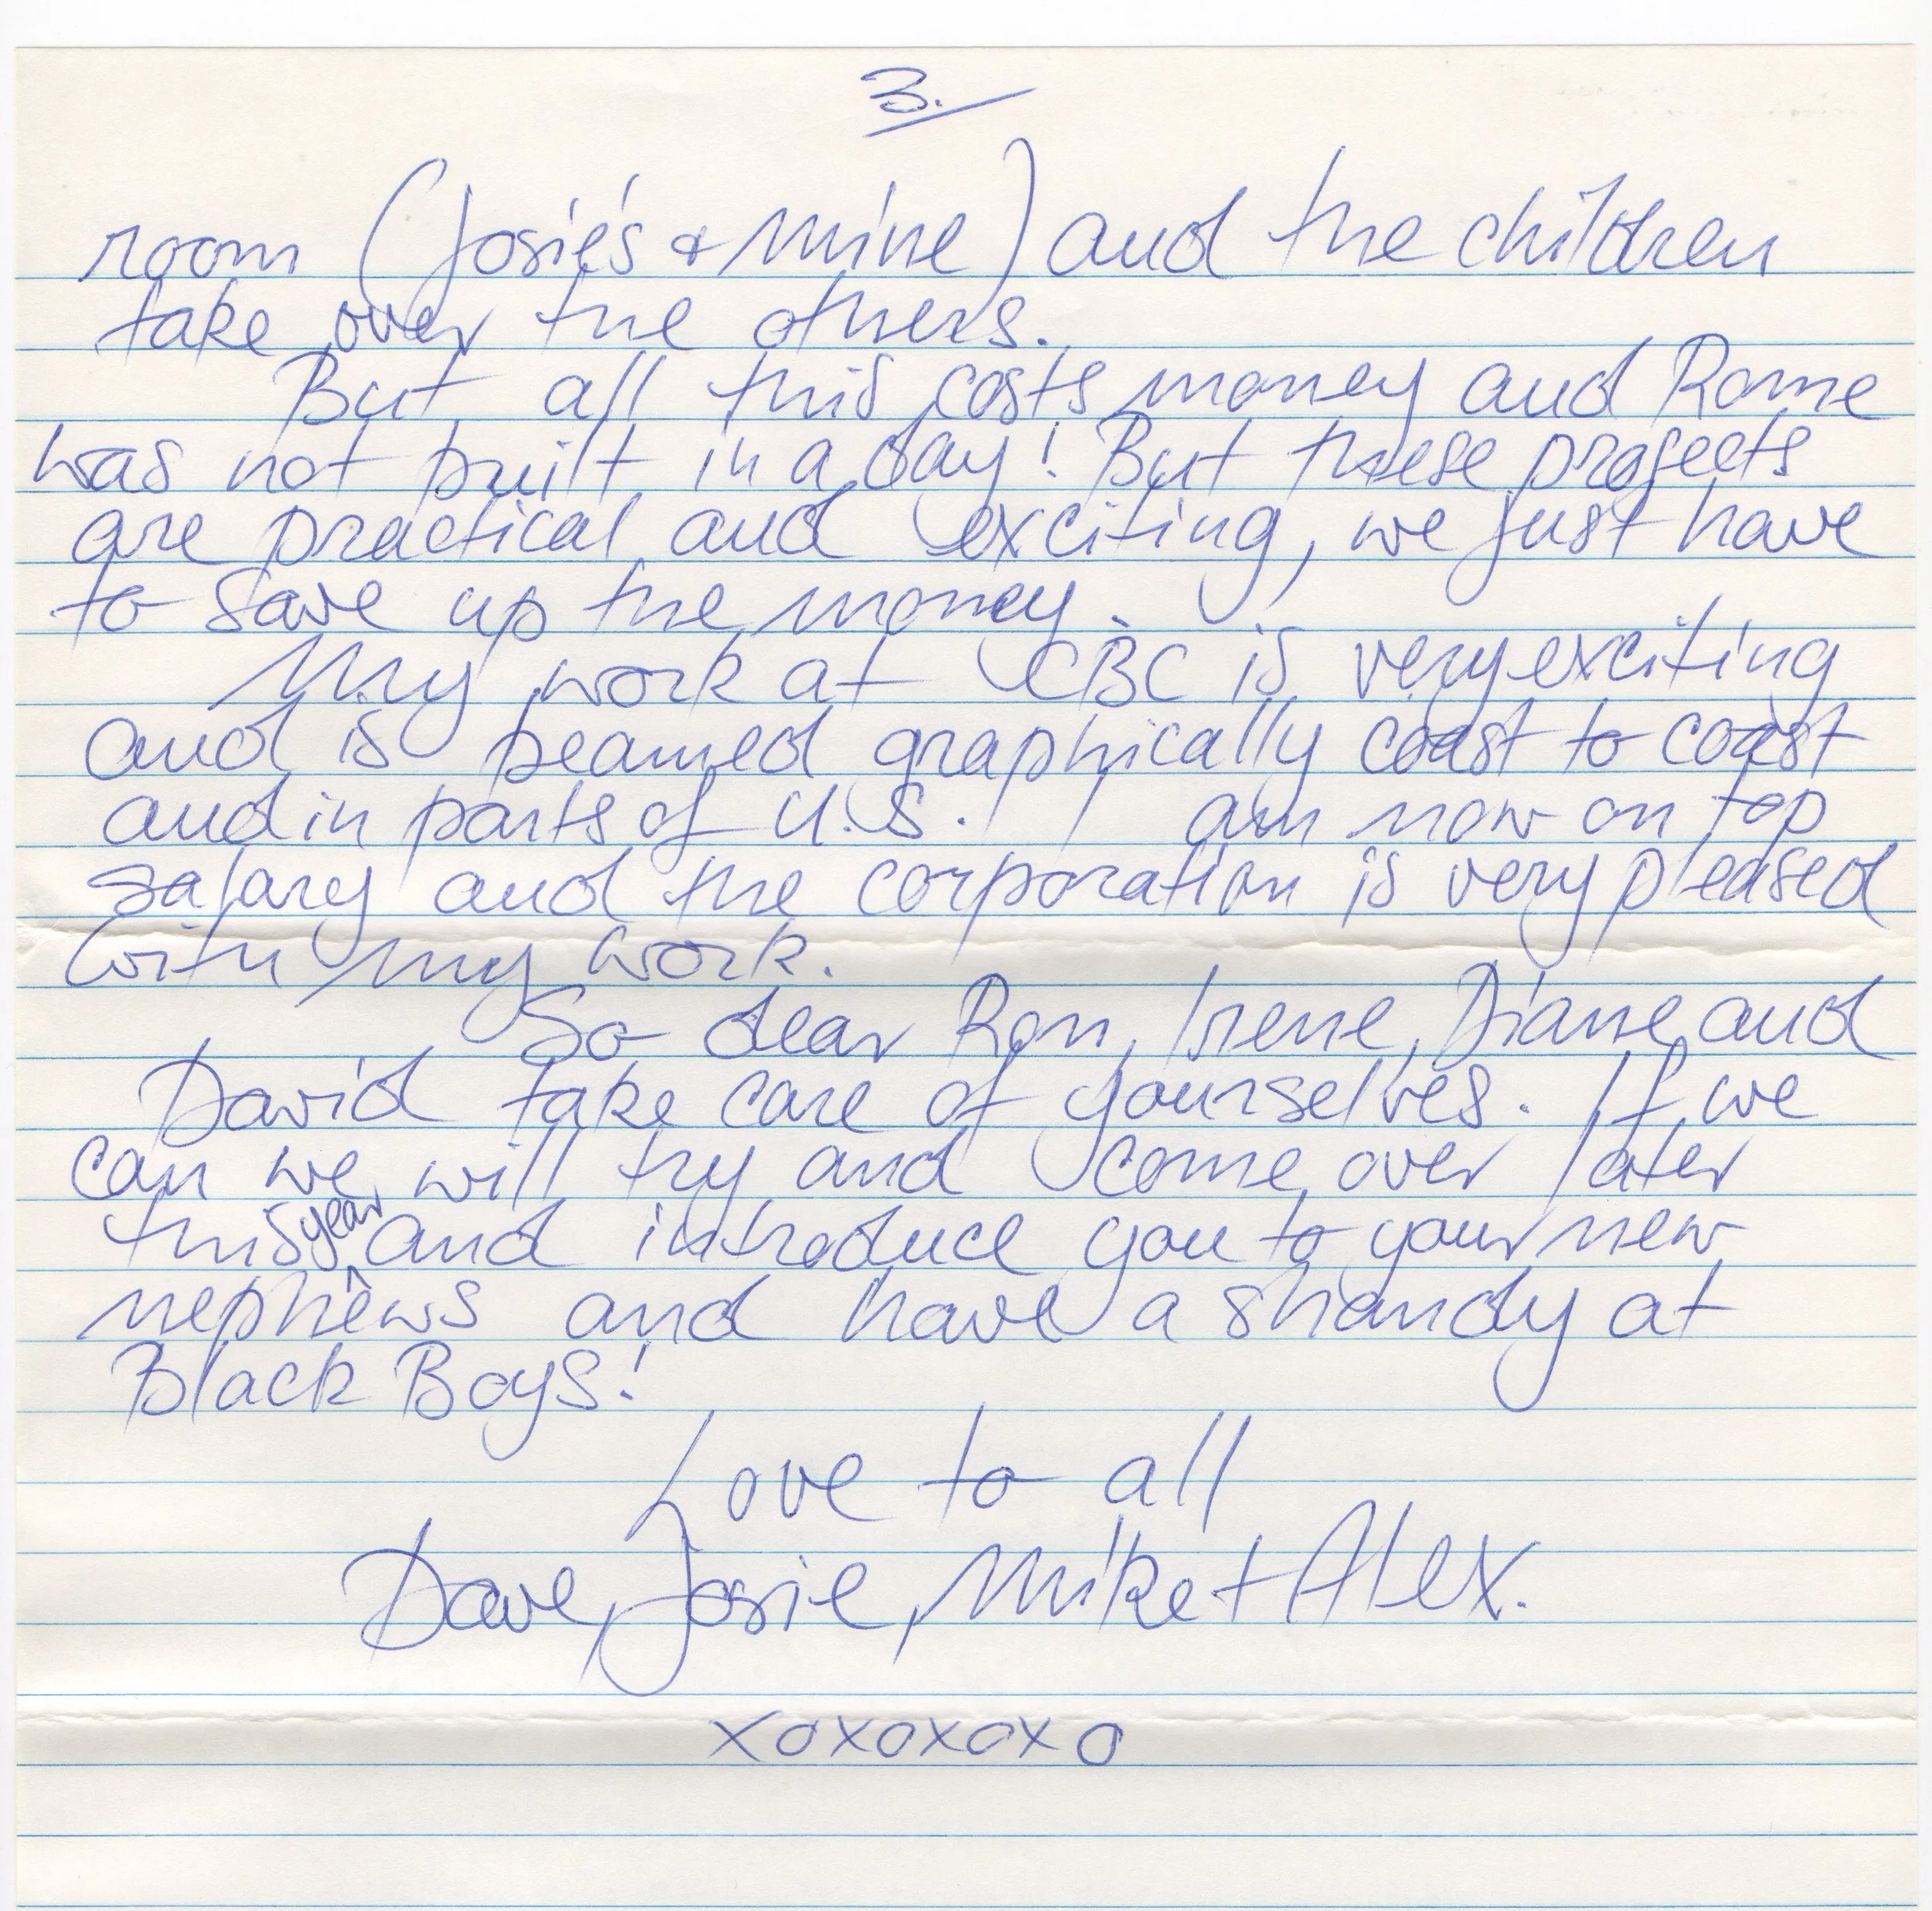 3.
room (Josie's & Mine) and the children
take over the others.
But all this costs money and Rome
was not built in a day! But these projects
are practical and exciting, we just have
to save up the money.
My work at CBC is very exciting
and is beamed graphically coast to coast
and in parts of U.S. I am now on top
salary and the corporation is very pleased
with my work.
So dear Ron, Irene, Diane and
David take care of yourselves. If we
can we will try and come over later
this year and introduce you to your new
nephews and have a shandy at
Black Boys!
Love to all
Dave, Josie, Mike + Alex.
xoxoxoxo